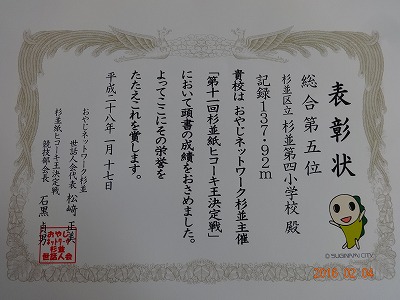 表彰状
総合第五位
杉並区立 杉並第四小学校 殿
記録137・92m
貴校は おやじネットワーク杉並主催
「第十一回杉並紙ヒコーキ王決定戦」
において頭書の成績をおさめました。
よってここにその栄誉を
たたえこれを賞します。
平成二十八年一月十七日
おやじネットワーク杉並
世話人会代表 松崎 正美
杉並紙ヒコーキ王決定戦
競技部会長 石黒
おやじ
ネットワーク
杉並
世話人会
© SUGINAMI CITY
2016 02 04